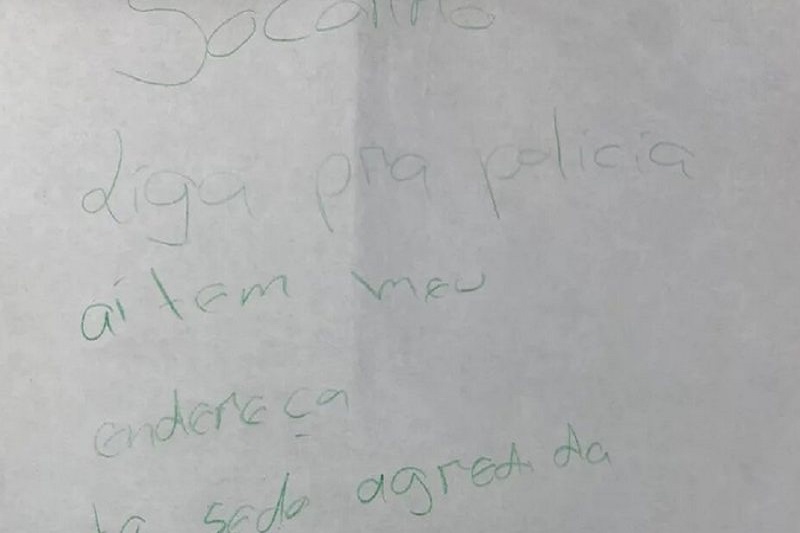 Socorro
liga pra policia
ai tem meu
endereça
ta sedo agredida